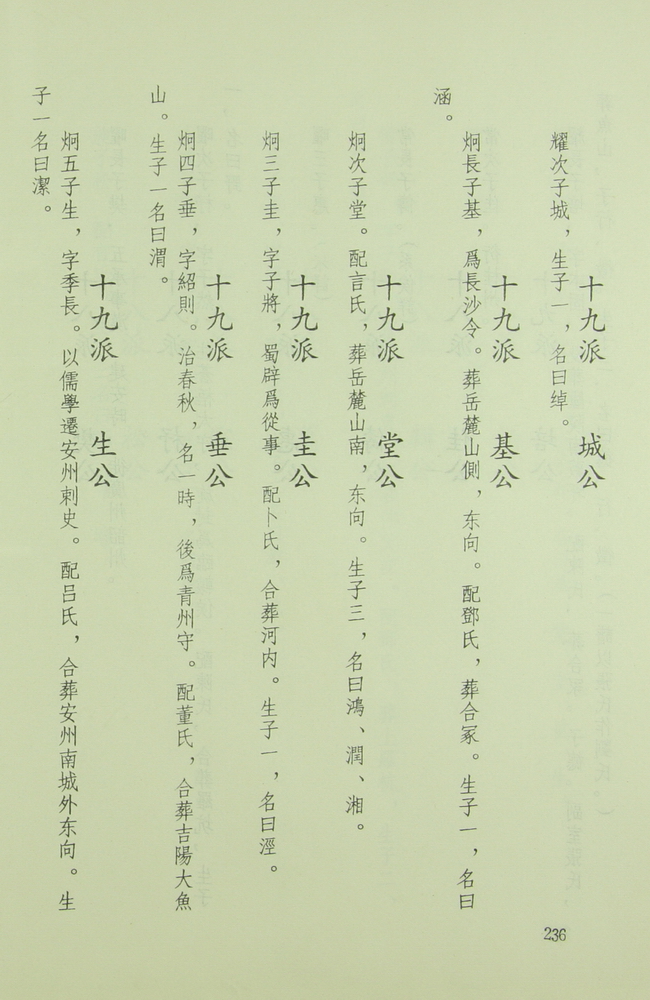 十九派　城公
耀次子城，生子一，名曰绰。
十九派　基公
炯長子基，爲長沙令。葬岳麓山側，东向。配鄧氏，葬合冢。生子一，名曰
涵。
十九派　堂公
炯次子堂。配言氏，葬岳麓山南，东向。生子三，名曰鴻、潤、湘。
十九派　圭公
炯三子圭，字子將，蜀辟爲從事。配卜氏，合葬河内。生子一，名曰涇。
十九派　垂公
炯四子垂，字紹則。治春秋，名一時，後爲青州守。配董氏，合葬吉陽大魚
山。生子一名曰渭。
十九派　生公
炯五子生，字季長。以儒學遷安州刺史。配吕氏，合葬安州南城外东向。生
子一名曰潔。
236